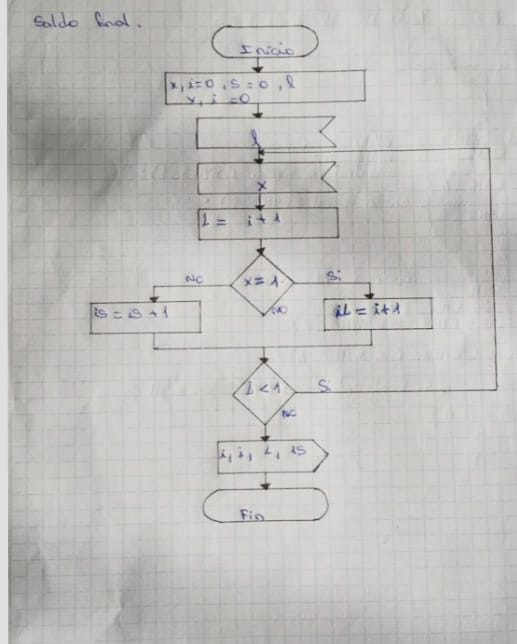 Saldo final.
Inicio
x, i=0, s=0, l
x, i =0
l
x
i = i+1
NO
x=1
Si
NO
is = is +1
iL = i+1
i < 1
Si
NO
i, i, L, is
Fin